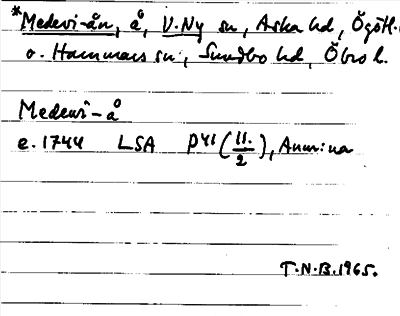 *Medevi-ån, å, V. Ny sn, Aska hd, Ögötl.
o. Hammars sn, Sundbo hd, Öbro l.
Medewi-å
e. 1744 LSA P41 (11./2),
T.N.B. 1965.